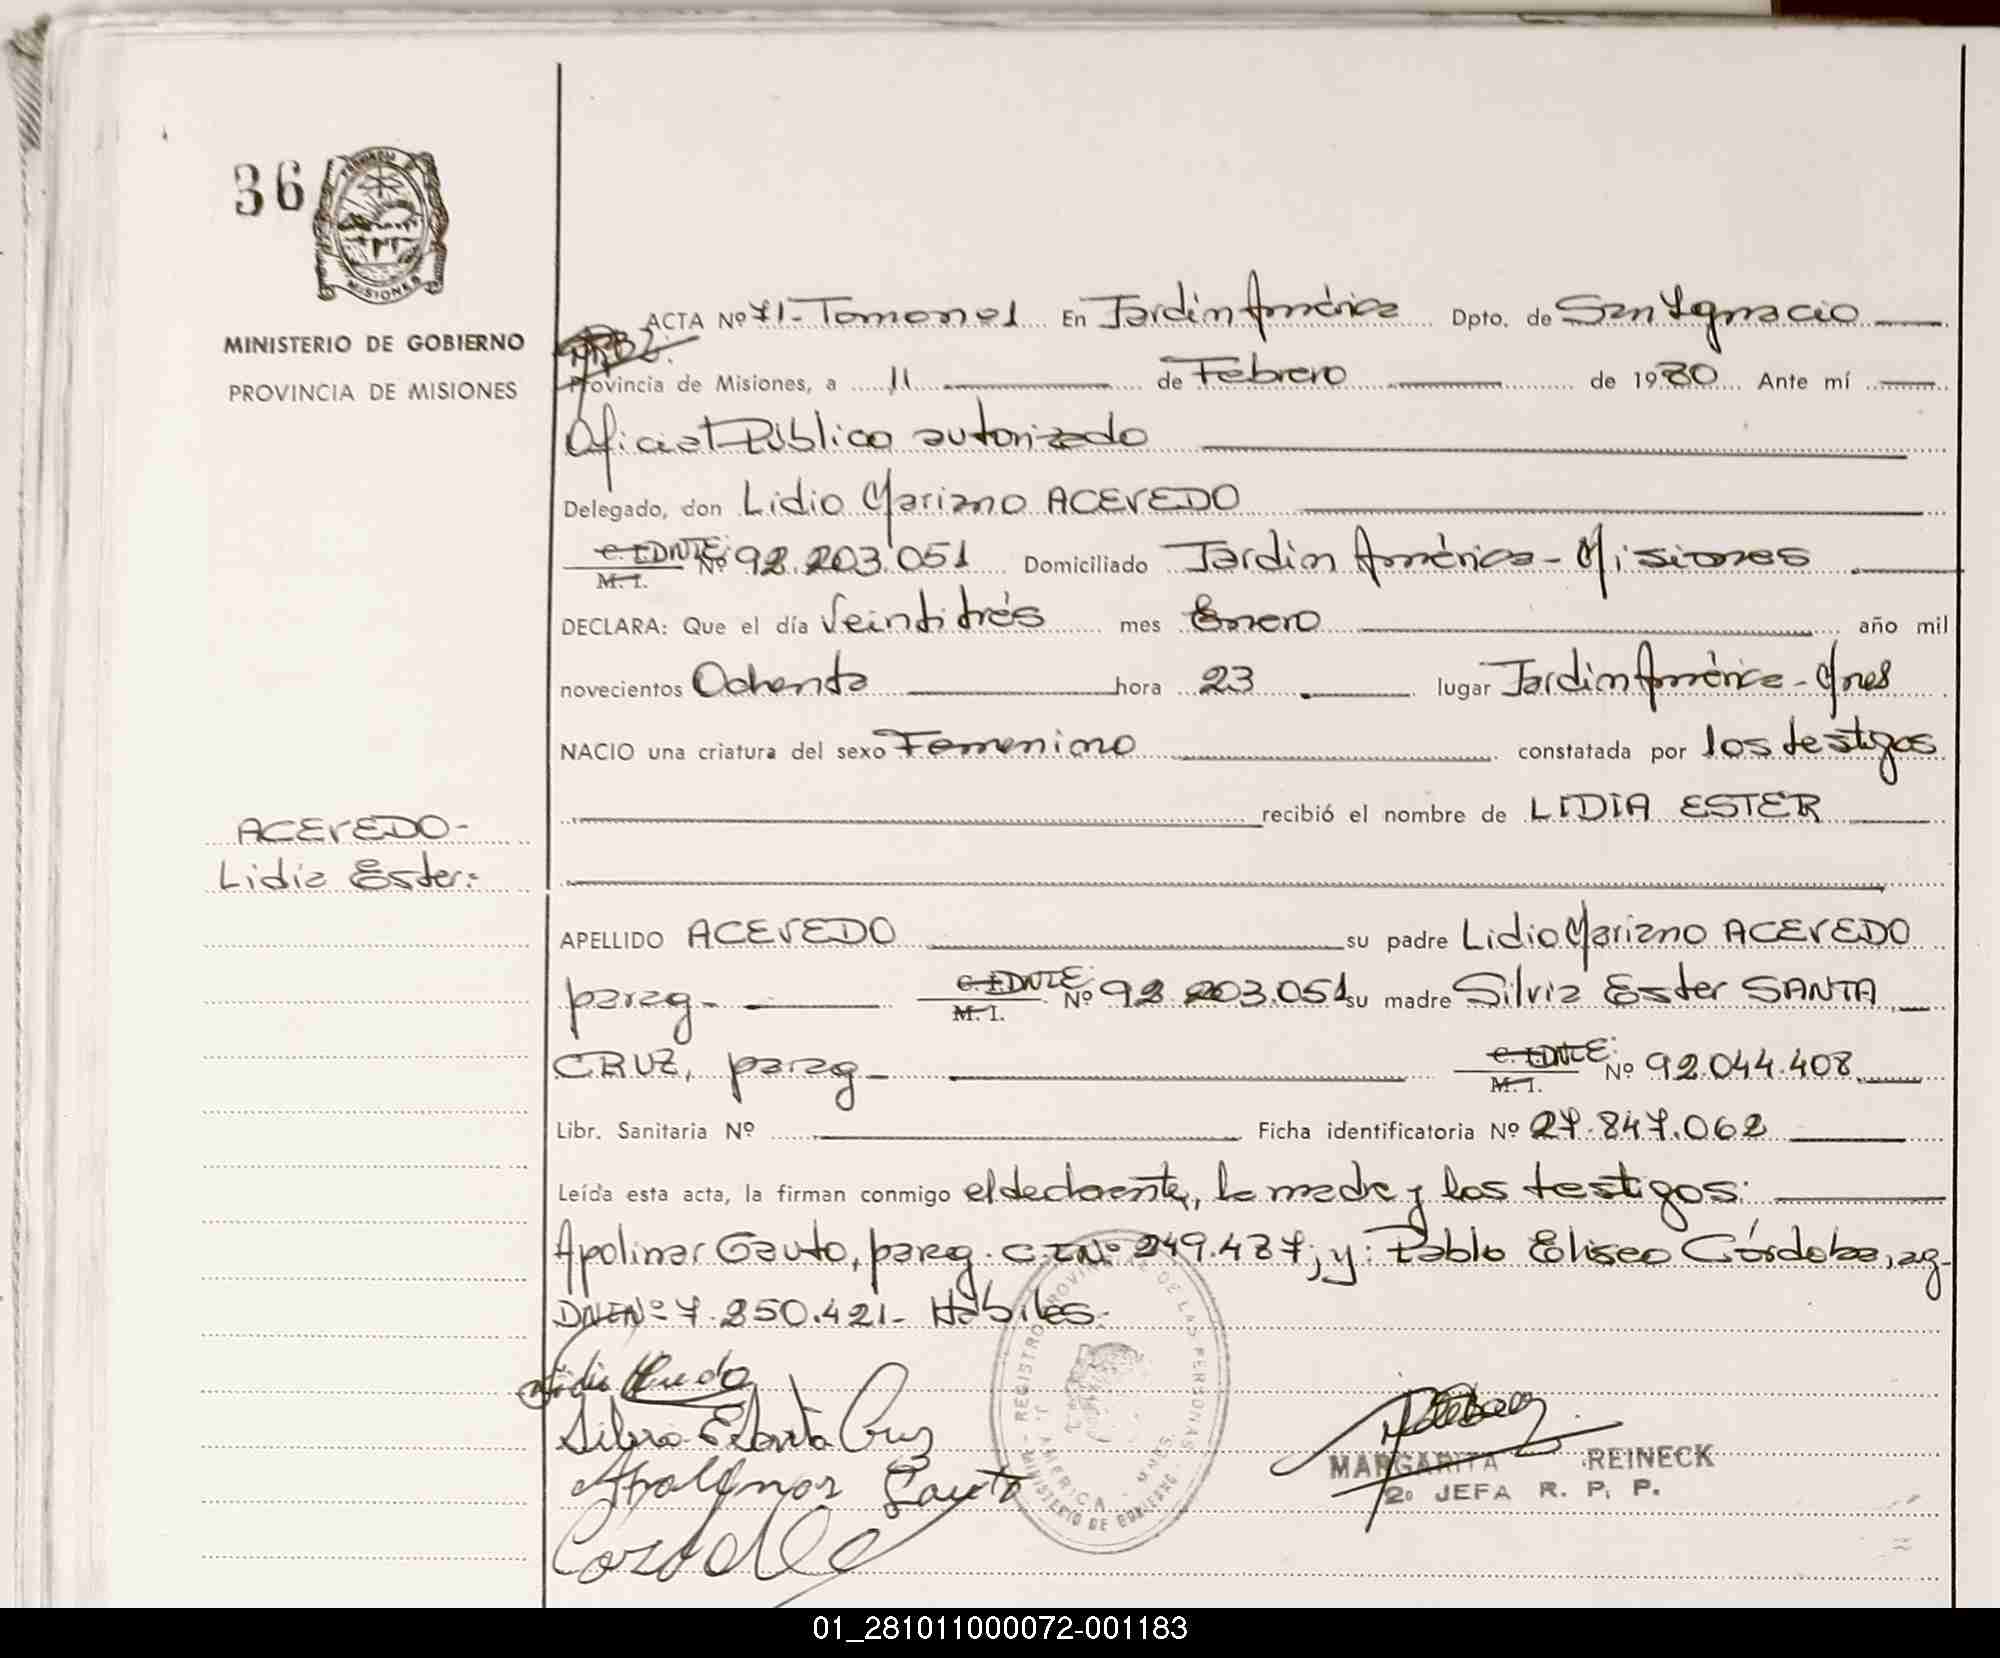 36
PROVINCIA DE
MISIONES
MINISTERIO DE GOBIERNO
PROVINCIA DE MISIONES
ACTA Nº 71- Tomo nº1 En Jardín América Dpto. de San Ignacio
Provincia de Misiones, a 11 de Febrero de 1980 Ante mí
Oficial Público autorizado
Delegado, don Lidio Mariano ACEVEDO
C. I. DNIE: M. I. Nº 92.203.051 Domiciliado Jardín América - Misiones
DECLARA: Que el día Veintitrés mes Enero año mil
novecientos Ochenta hora 23 lugar Jardín América - Mnes
NACIO una criatura del sexo Femenino constatada por los testigos
recibió el nombre de LIDIA ESTER
ACEVEDO-
Lidia Ester:
APELLIDO ACEVEDO su padre Lidio Mariano ACEVEDO
parag- C. I. DNIE: M. I. Nº 92.203.051 su madre Silvia Ester SANTA
CRUZ, parag- C. I. DNIE: M. I. Nº 92.044.408
Libr. Sanitaria Nº Ficha identificatoria Nº 27.847.062
Leída esta acta, la firman conmigo el declarante, la madre y los testigos:
Apolinar Gauto, parag. C.I.Nº 249.487; y: Pablo Eliseo Córdoba, ag-
DNI Nº 7.850.421- Hábiles.
Silvia E Santa Cruz
Apolinar Gauto
REGISTRO PROVINCIAL DE LAS PERSONAS
MINISTERIO DE GOBIERNO
J. AMERICA - MNES.
MARGARITA REINECK
2º JEFA R. P. P.
01_281011000072-001183